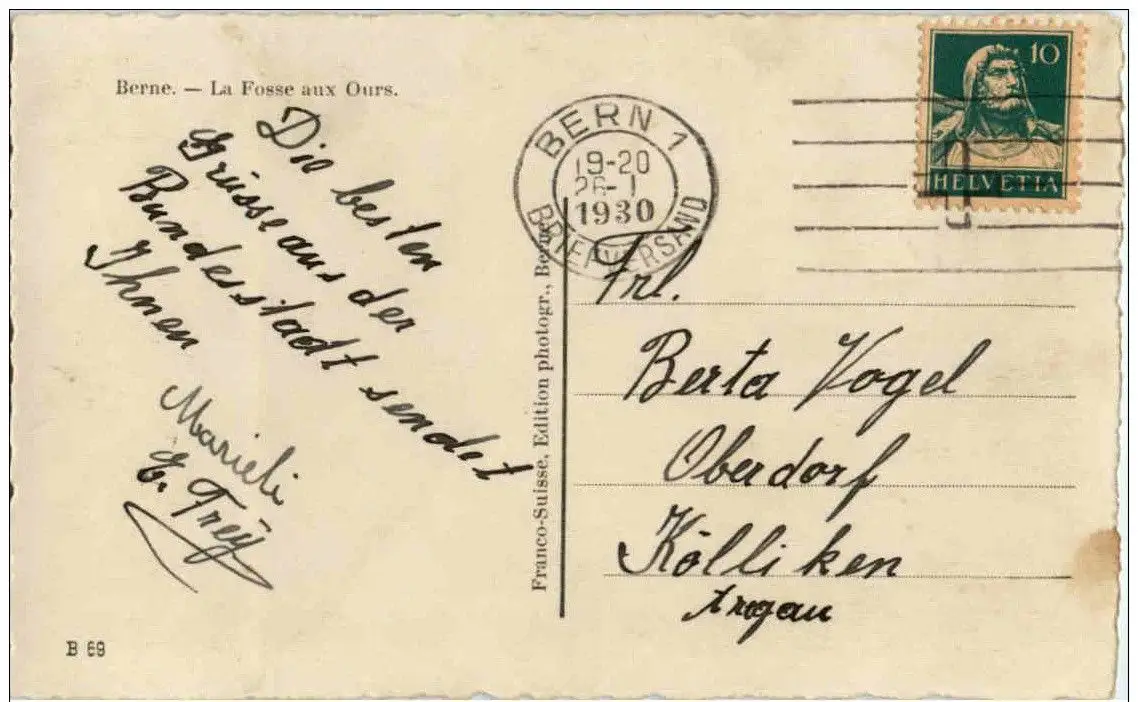 Berne. — La Fosse aux Ours.
Die besten
Grüsse aus der
Bundesstadt sendet
Ihnen
Marieli
E. Frey
B 69
Franco-Suisse, Edition photogr., Berne
BERN 1
19-20
26-1
1930
BRIEFVERSAND
10
HELVETIA
Frl.
Berta Vogel
Oberdorf
Kölliken
Argau